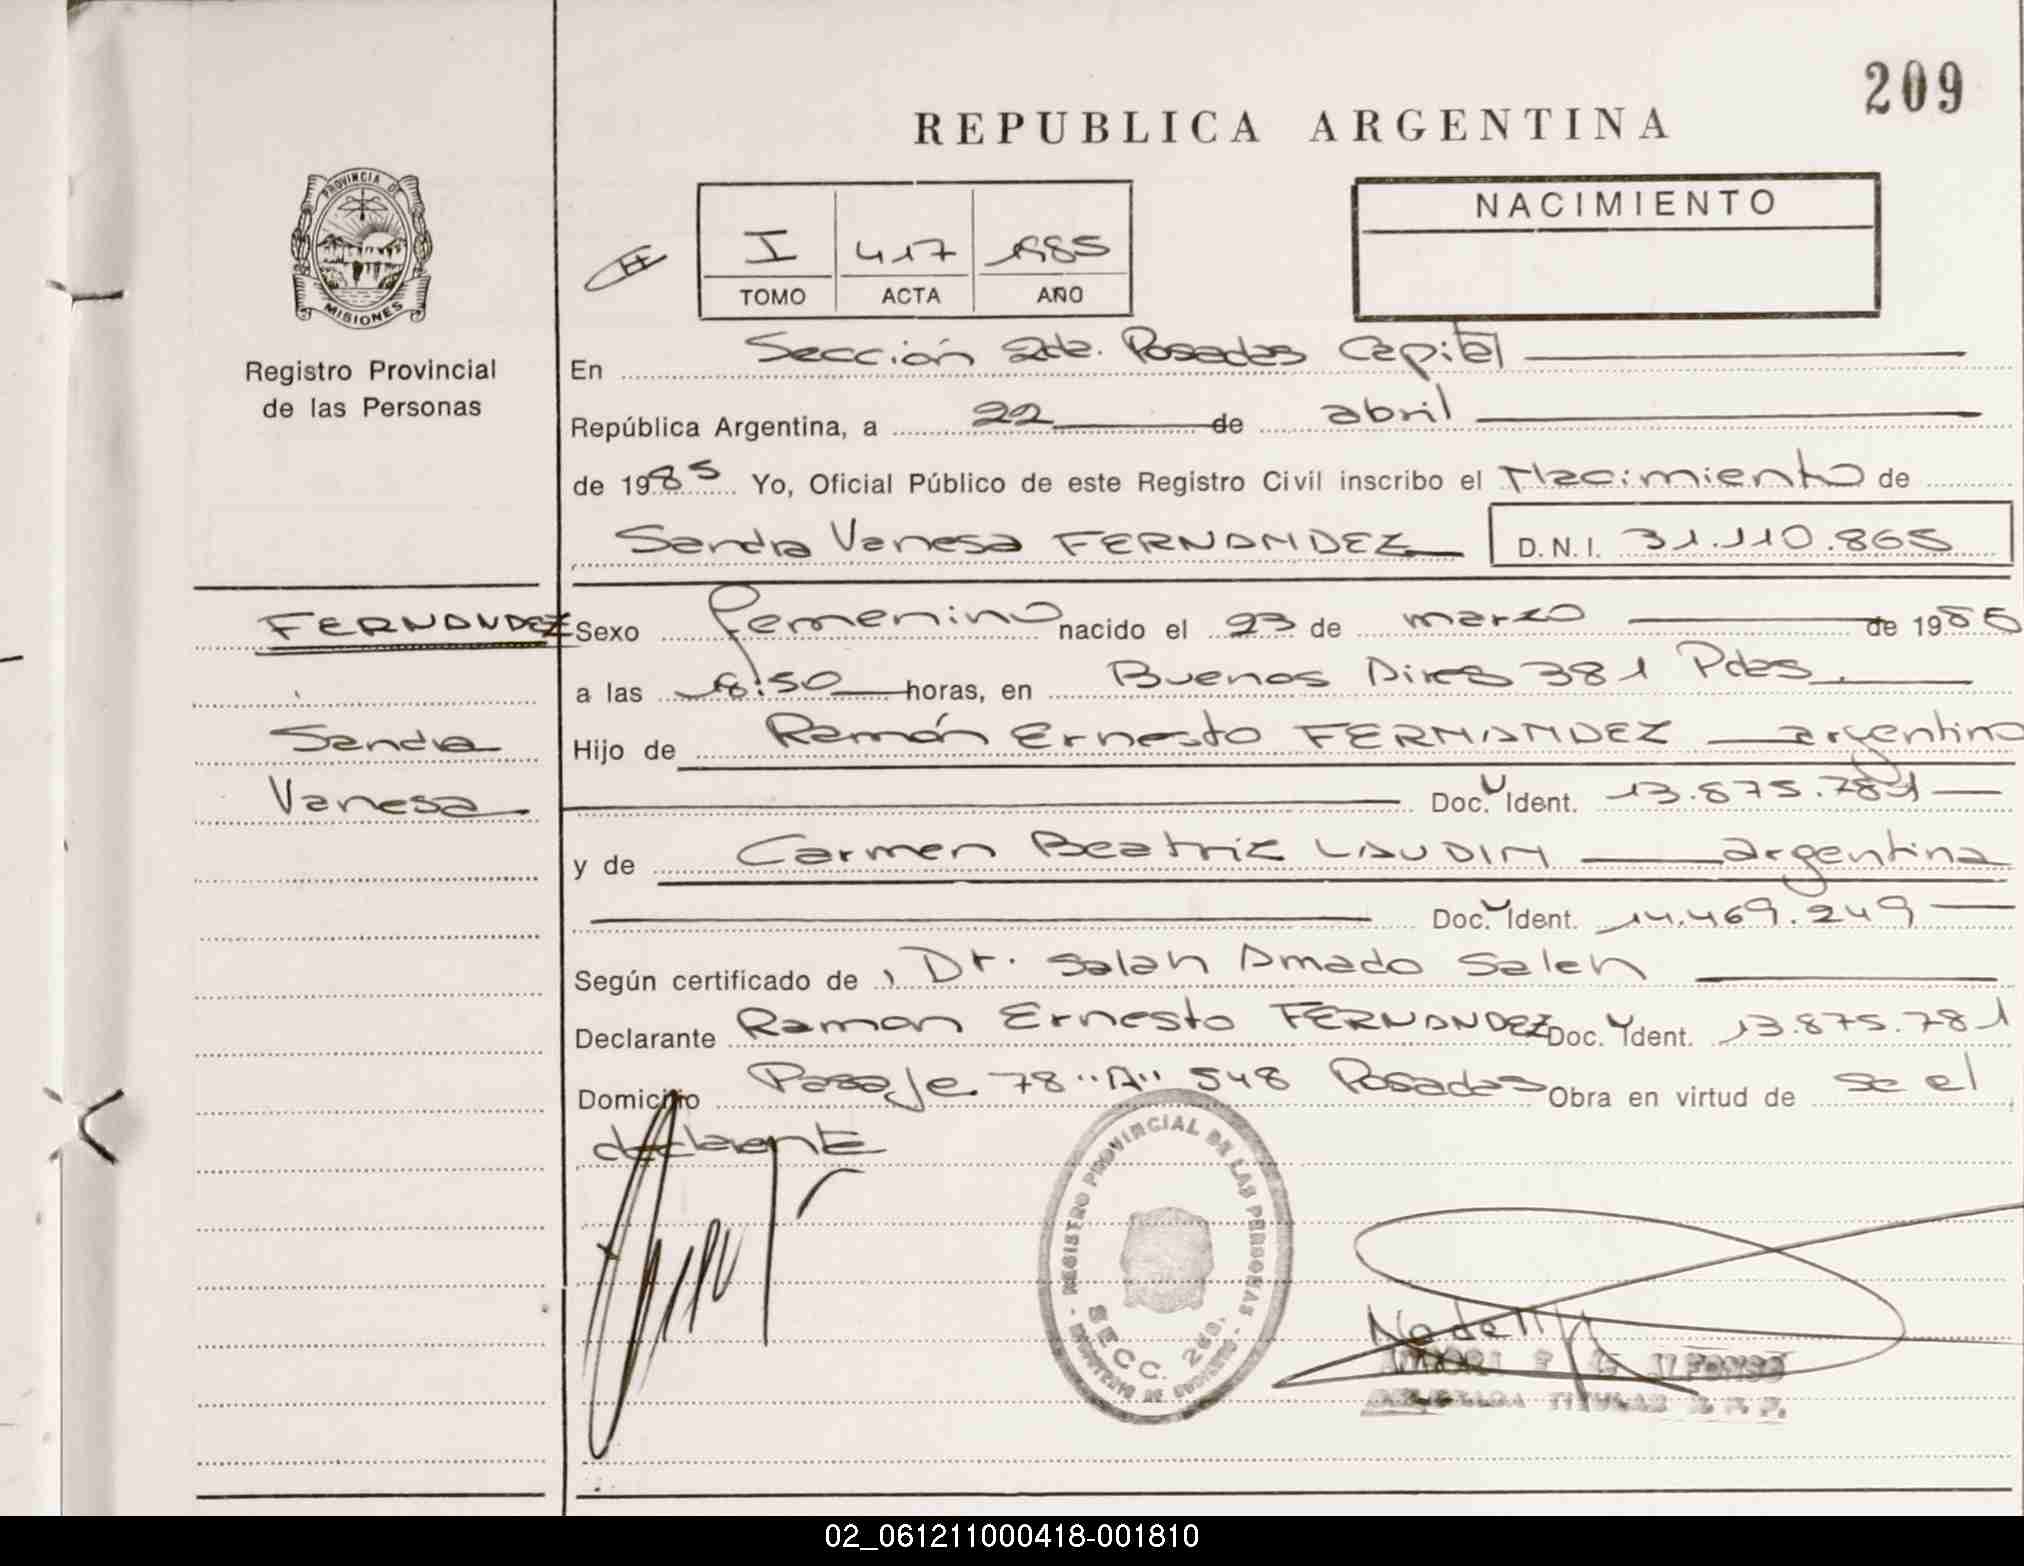 209
REPUBLICA ARGENTINA
PROVINCIA DE
MISIONES
Registro Provincial
de las Personas
I 417 1985
TOMO ACTA AÑO
NACIMIENTO
En Sección 2da. Posadas Capital
República Argentina, a 22 de abril
de 1985 Yo, Oficial Público de este Registro Civil inscribo el Nacimiento de
Sandra Vanesa FERNANDEZ D.N.I. 31.110.865
FERNANDEZ
Sandra
Vanesa
Sexo femenino nacido el 23 de marzo de 1985
a las 18:50 horas, en Buenos Aires 381 Pdas.
Hijo de Ramón Ernesto FERNANDEZ argentino
Doc. Ident. 13.875.781
y de Carmen Beatriz LAUDIN argentina
Doc. Ident. 14.469.249
Según certificado de Dr. Salah Amado Saleh
Declarante Ramon Ernesto FERNANDEZ Doc. Ident. 13.875.781
Domicilio Pasaje 78 "A" 548 Posadas Obra en virtud de se el
declarante
REGISTRO PROVINCIAL DE LAS PERSONAS
SECC. 2da.
ALFONSO
TITULAR R. P. P.
02_061211000418-001810